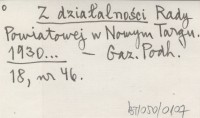 Z działalności Rady
Powiatowej w Nowym Targu.
1930... — Gaz. Podh.
18, nr 46.